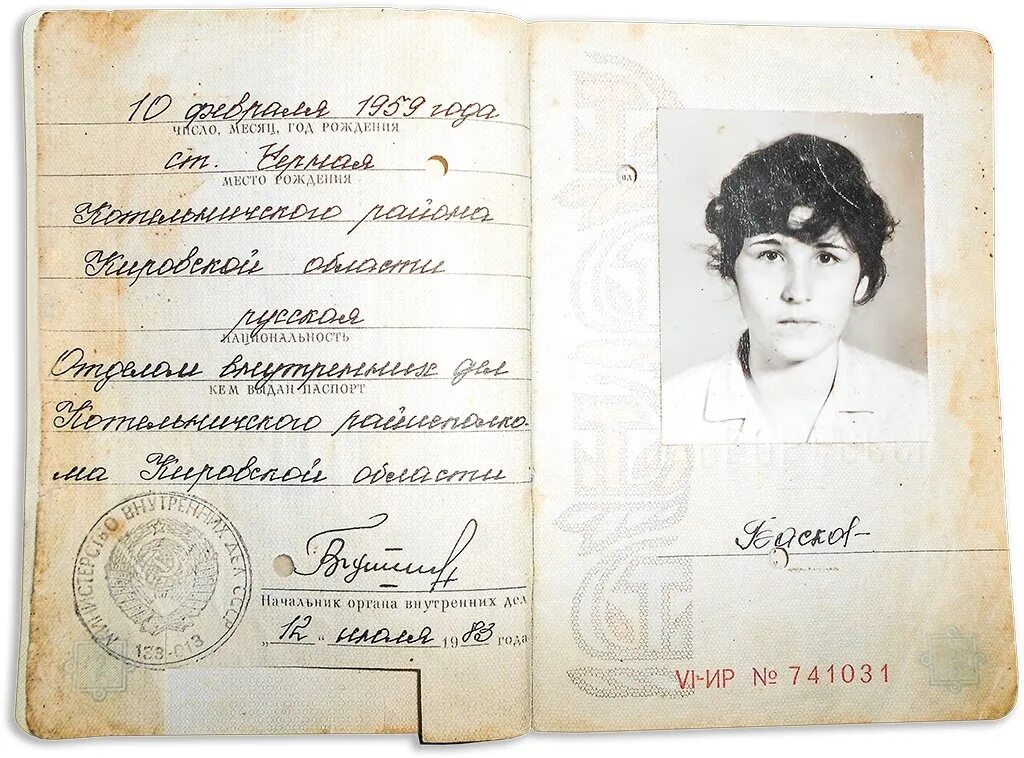 10 февраля 1959 года
ЧИСЛО, МЕСЯЦ, ГОД РОЖДЕНИЯ
ст. Черная
МЕСТО РОЖДЕНИЯ
Котельничского района
Кировской области
русская
НАЦИОНАЛЬНОСТЬ
Отделом внутренних дел
КЕМ ВЫДАН ПАСПОРТ
Котельничского райисполко-
ма Кировской области
МИНИСТЕРСТВО ВНУТРЕННИХ ДЕЛ СССР
139-013
Начальник органа внутренних дел
„12“ июля 1983 года
VI-ИР № 741031